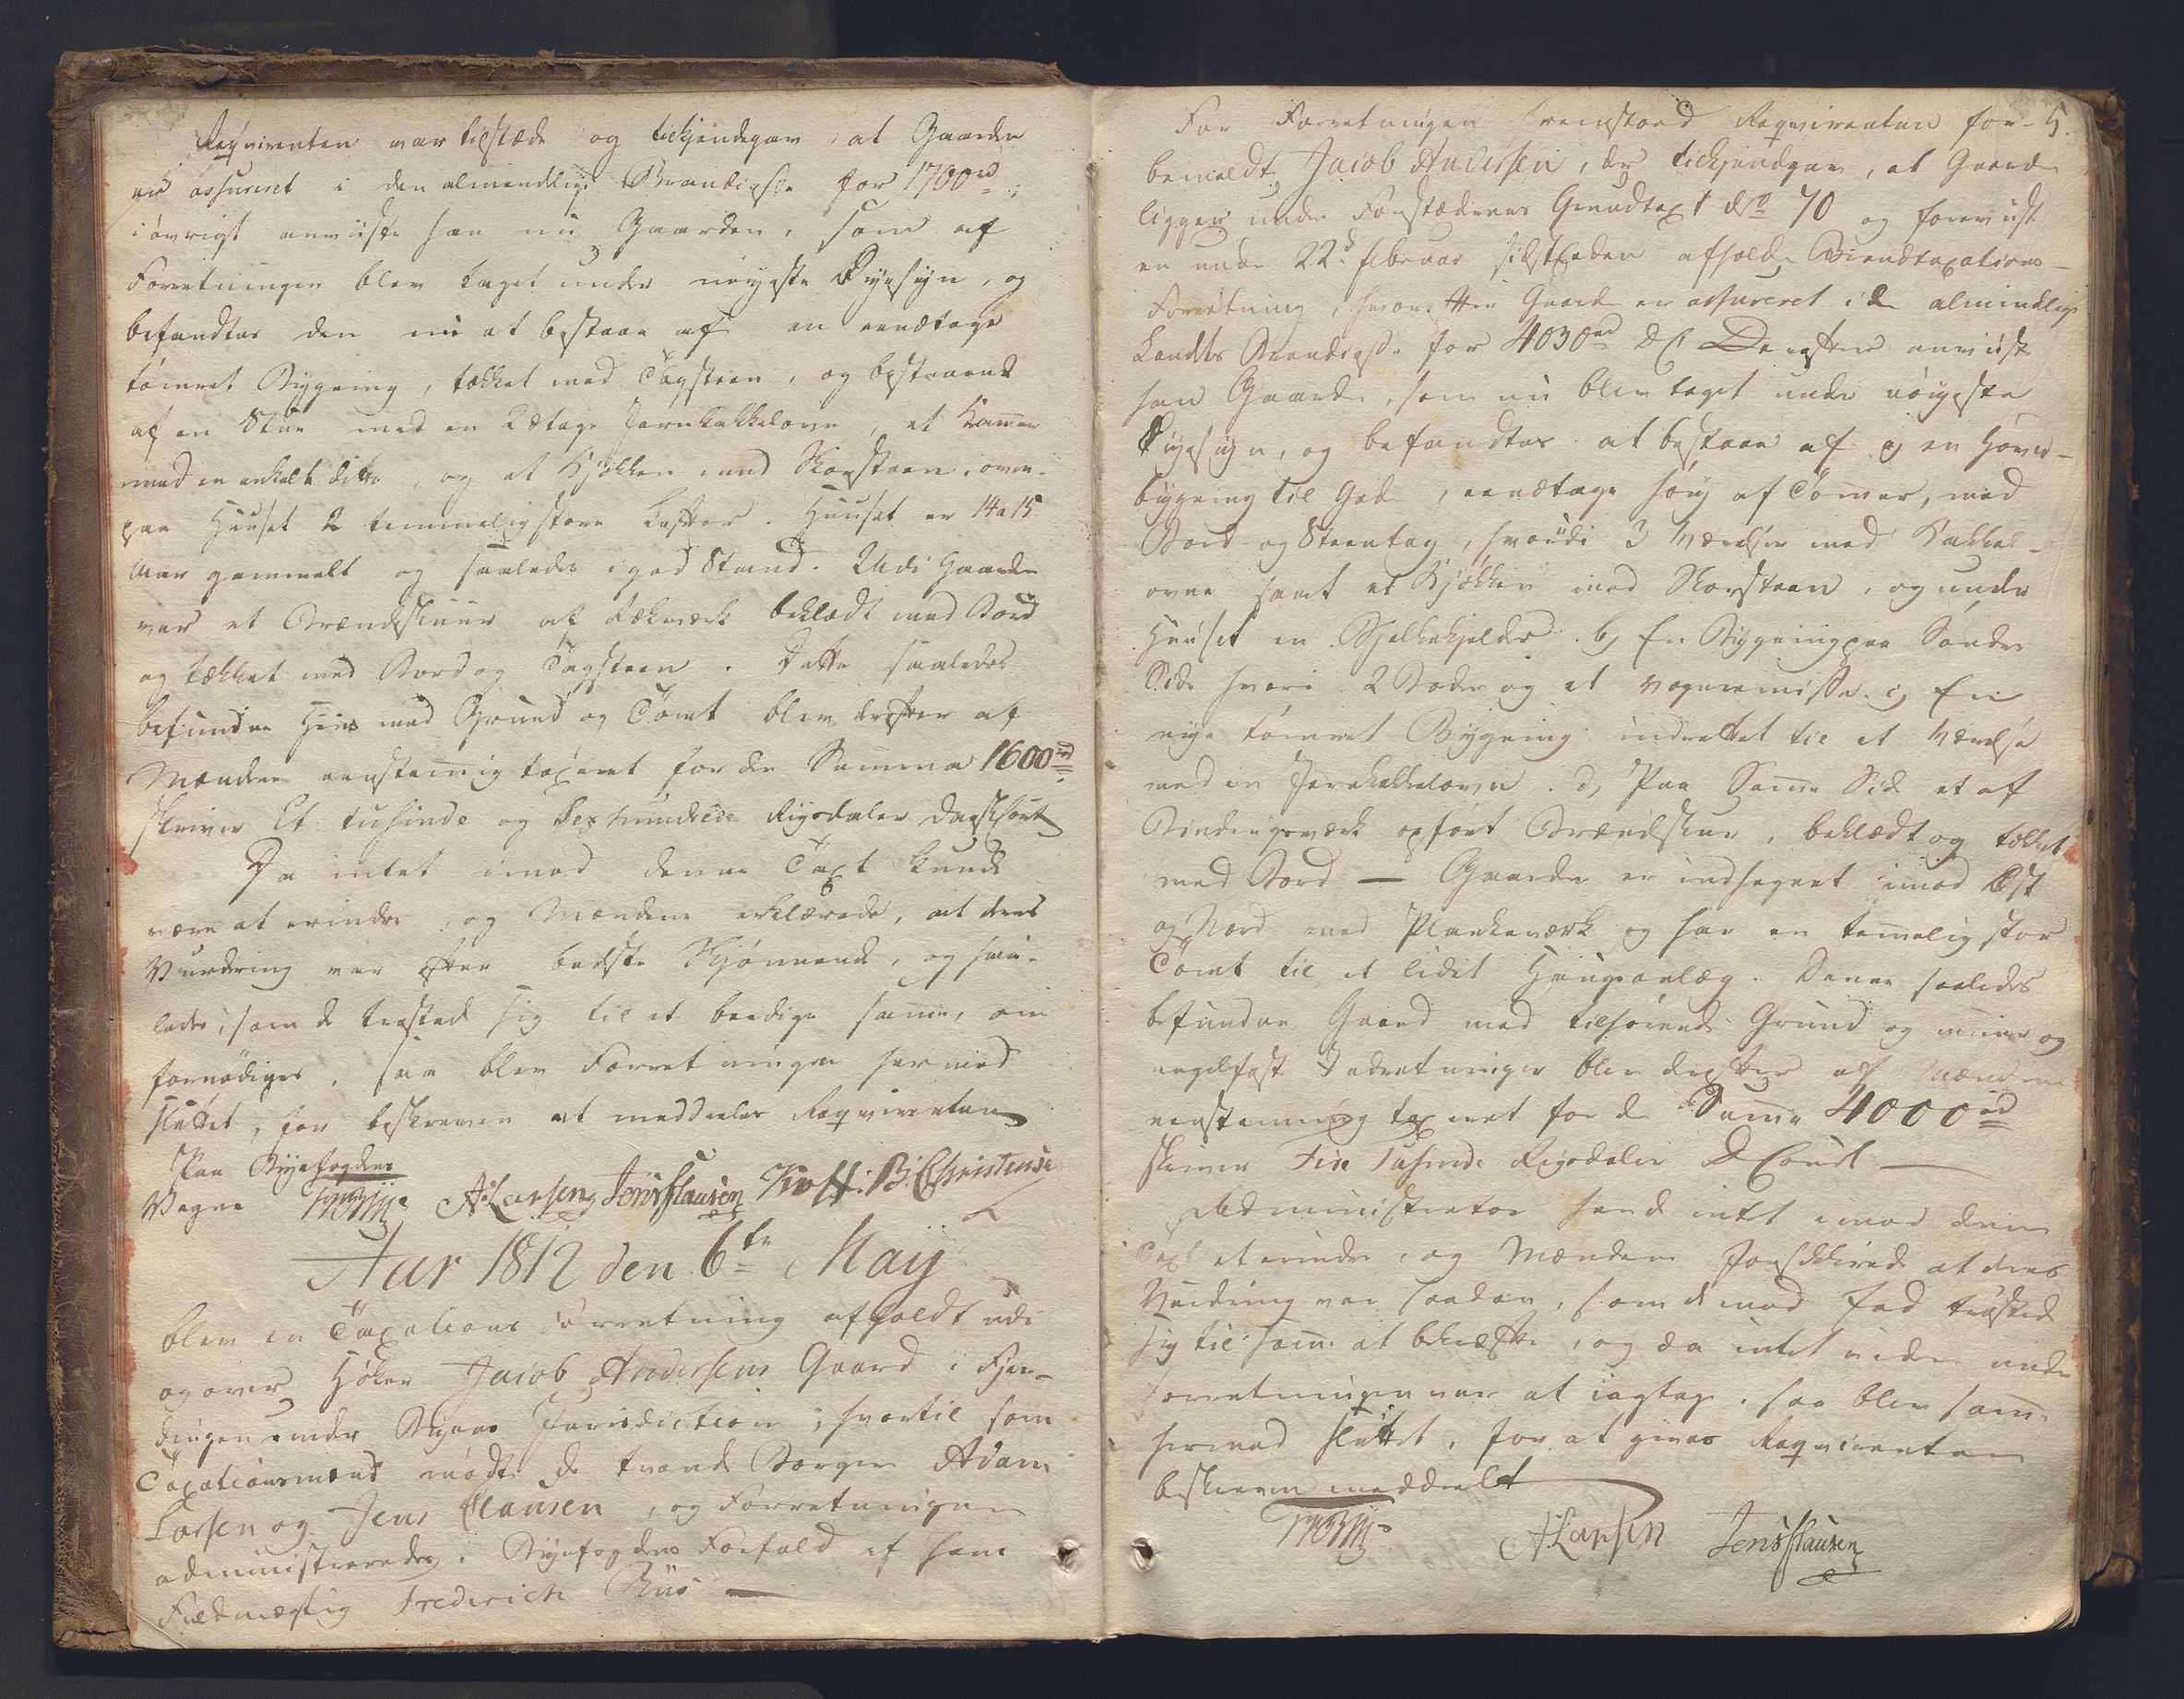 Reqvirenten var tilstæde og tilkjendegav, at Gaarden
er assureret i den almindelige Brandcasse for 1700 rd;
i øvrigt anviiste han nu Gaarden, som af
Forretningen blev taget under nøyeste Øyesyn, og
befandtes den nu at bestaae af en eenetages
tømret Bygning, tækket med Tagsteen, og bestaaende
af en Stue med en 2 Etages Jernkakkelovn, et Kammer
med en enkelt ditto, og et Kjøkken med Skorsteen; oven-
paa Huuset 2 temmelig store Lofter. Huuset er 14 a 15
Aar gammelt og saaledes i god Stand. Udi Gaarden
var et Brændeskuur af Rekværk beklædt med Bord
og tækket med Bord og Tagsteen. Dette saaledes
befundne Huus med Grund og Tomt blev derefter af
Mændene eenstemmig taxeret for den Summa 1600 rd
skriver Et tusinde og Sexhundrede Rigsdaler Dansk Court
Da intet imod denne Taxt kunde
være at erindre, og Mændene erklærede, at deres
Vurdering var efter bedste Skjønnende, og saa-
ledes, som de trøsted sig til at beedige samme, om
fornødiges, saa blev Forretningen hermed
sluttet, for beskreven at meddeeles Reqvirenten
Paa Byefogdens
Vegne A: Larsen Jens Clausen B: Christensen
Aar 1812 den 6te Maÿ
blev en Taxations Forretning afholdt udi
og over Høker Jacob Andersens Gaard i Fjer-
dingen under Byens Jurisdiction; hvortil som
Taxationsmænd mødte de tvende Borgere Adam
Larsen og Jens Clausen, og Forretningen
administreredes i Byefogdens Forfald af hans
Fuldmægtig Frederich Riis
5.
For Forretningen fremstoed Reqvirenten for-
bemeldte Jacob Andersen, der tilkjendegav, at Gaarden
ligger under Forstædernes Grundtaxt No 70 og foreviiste
en under 22de februar sidstleden afholdt Brandtaxations-
Forretning, hvorefter Gaarden er assureret i den almindelige
Landets Brandcasse for 4030 rd DC. Derefter anviiste
han Gaarden, som nu blev taget under nøyeste
Øyesyn, og befandtes at bestaae af a) en Hoved-
bygning til Gade, eenetage høy af Tømmer, med
Bord og Steentag, hvorudi 3 Værelser med Kakkel-
ovne samt et Kjøkken med Skorsteen, og under
Huuset en Bjelkekjelder. b) En Bygning paa Søndre
Side hvori 2 Boder og et Vognremisse. c) En
nye tømret Bygning indrettet til et Værelse
med en Jernkakkelovn. d) Paa Samme Side et af
Bindingsværk opført Brændeskuur, beklædt og tækket
med Bord — Gaarden er indhegnet imod Øst
og Nord med Plankeværk og har en temmelig stor
Tomt til et lidet Haugeanlæg. Denne saaledes
befundne Gaard med tilhørende Grund og muur og
nagelfast Indretninger blev derefter af Mændene
eenstemmig taxeret for den Summa 4000 rd
skriver Fire Tusinde Rigsdaler D Court
Administrator havde intet imod denne
Taxt at erindre, og Mændene forsikkrede at deres
Vurdering var saadan, som de med Eed trøsted
sig til samme at bekræfte, og da intet videre under
Forretningen var at iagttage, saa blev samme
hermed sluttet, for at gives Reqvirenten
beskreven meddeelt
A: Larsen Jens Clausen